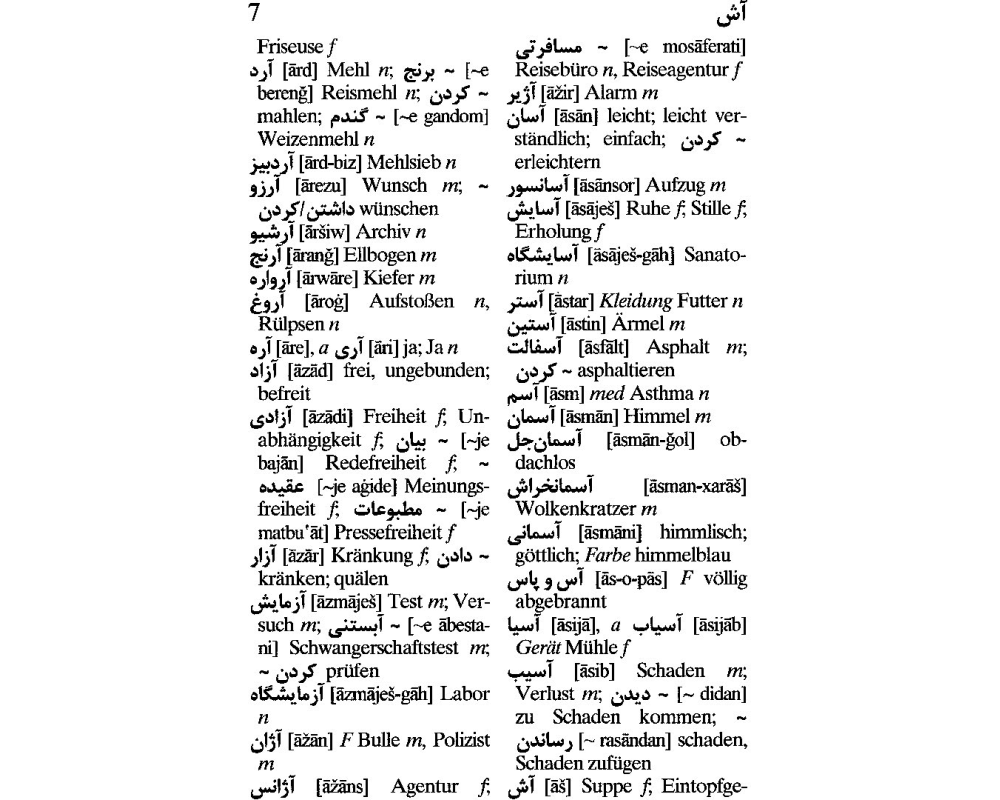 7
آش
Friseuse f
آرد [ārd] Mehl n; برنج ~ [~e
berenǧ] Reismehl n; کردن ~
mahlen; گندم ~ [~e gandom]
Weizenmehl n
آردبیز [ārd-biz] Mehlsieb n
آرزو [ārezu] Wunsch m; ~
داشتن/کردن wünschen
آرشیو [āršiw] Archiv n
آرنج [āranǧ] Ellbogen m
آرواره [ārwāre] Kiefer m
آروغ [āroġ] Aufstoßen n,
Rülpsen n
آره [āre], a آری [āri] ja; Ja n
آزاد [āzād] frei, ungebunden;
befreit
آزادی [āzādi] Freiheit f; Un-
abhängigkeit f; بیان ~ [~je
bajān] Redefreiheit f; ~
عقیده [~je aġide] Meinungs-
freiheit f; مطبوعات ~ [~je
matbu'āt] Pressefreiheit f
آزار [āzār] Kränkung f; دادن ~
kränken; quälen
آزمایش [āzmāješ] Test m; Ver-
such m; آبستنی ~ [~e ābesta-
ni] Schwangerschaftstest m;
کردن ~ prüfen
آزمایشگاه [āzmāješ-gāh] Labor
n
آژان [āžān] F Bulle m, Polizist
m
آژانس [āžāns] Agentur f;
مسافرتی ~ [~e mosāferati]
Reisebüro n, Reiseagentur f
آژیر [āžir] Alarm m
آسان [āsān] leicht; leicht ver-
ständlich; einfach; کردن ~
erleichtern
آسانسور [āsānsor] Aufzug m
آسایش [āsāješ] Ruhe f; Stille f;
Erholung f
آسایشگاه [āsāješ-gāh] Sanato-
rium n
آستر [āstar] Kleidung Futter n
آستین [āstin] Ärmel m
آسفالت [āsfālt] Asphalt m;
کردن ~ asphaltieren
آسم [āsm] med Asthma n
آسمان [āsmān] Himmel m
آسمان‌جل [āsmān-ǧol] ob-
dachlos
آسمانخراش [āsman-xarāš]
Wolkenkratzer m
آسمانی [āsmāni] himmlisch;
göttlich; Farbe himmelblau
آس و پاس [ās-o-pās] F völlig
abgebrannt
آسیا [āsijā], a آسیاب [āsijāb]
Gerät Mühle f
آسیب [āsib] Schaden m;
Verlust m; دیدن ~ [~ didan]
zu Schaden kommen; ~
رساندن [~ rasāndan] schaden,
Schaden zufügen
آش [āš] Suppe f; Eintopfge-